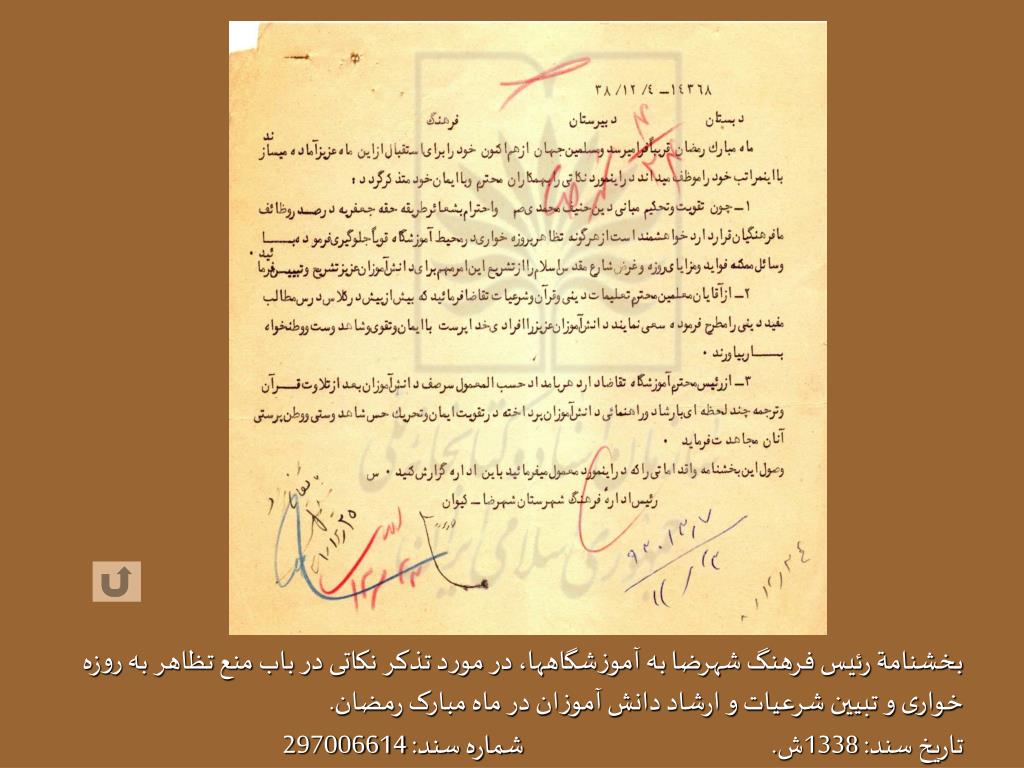 ۱۴۳۶۸ــ ۴/ ۱۲/ ۳۸
دبستان دبیرستان فرهنگ
ماه مبارك رمضان قریباً فرا میرسد ومسلمین جهان ازهم اکنون خود را برای استقبال ازاین ماه عزیز آماده میسازند
با اینمراتب خود را موظف میداند در اینمورد نکاتی را بهمکاران محترم وباایمان خود متذکر گردد :
۱ــ چون تقویت وتحکیم مبانی دین حنیف محمدی ص واحترام بشعائر طریقه حقه جعفریه در صدر وظائف
ما فرهنگیان قرار دارد خواهشمند است از هرگونه تظاهر بروزه خواری در محیط آموزشگاه قویاً جلوگیری فرموده بــا
وسائل ممکنه فواید ومزایای روزه وغرض شارع مقدس اسلام را از تشریح این امر مهم برای دانش آموزان عزیز تشریح وتبیین فرمائید .
۲ــ از آقایان معلمین محترم تعلیمات دینی وقرآن وشرعیات تقاضا فرمائید که بیش از پیش در کلاس درس مطالب
مفید دینی را مطرح فرموده سعی نمایند دانش آموزان عزیز را افرادی خدا پرست باایمان وتقوی وشاهدوست ووطنخواه
بــار بیاورند .
۳ــ از رئیس محترم آموزشگاه تقاضا دارد هر بامداد حسب المعمول سر صف دانش آموزان بعد از تلاوت قــرآن
وترجمه چند لحظه ای بارشاد وراهنمائی دانش آموزان پرداخته در تقویت ایمان وتحریك حس شاهدوستی ووطن پرستی
آنان مجاهدت فرماید .
وصول این بخشنامه واقداماتی را که در اینمورد معمول میفرمائید باین اداره گزارش کنید . س
رئیس اداره فرهنگ شهرستان شهرضا ــ کیوان
بخشنامة رئیس فرهنگ شهرضا به آموزشگاهها، در مورد تذکر نکاتی در باب منع تظاهر به روزه
خواری و تبیین شرعیات و ارشاد دانش آموزان در ماه مبارک رمضان.
تاریخ سند: 1338ش. شماره سند: 297006614